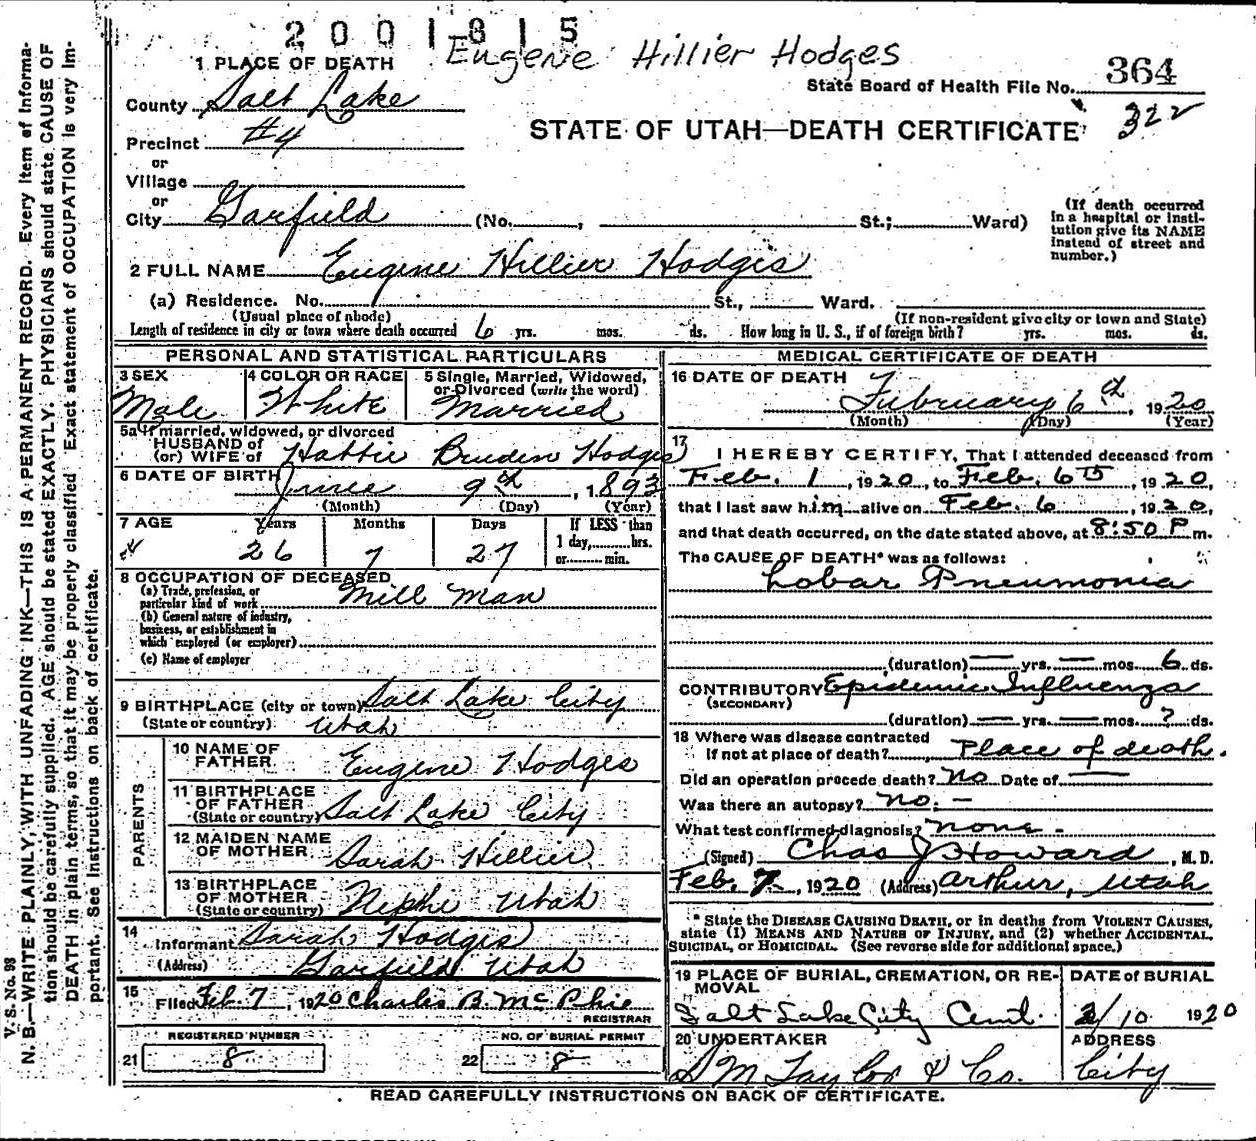 2001815
Eugene Hillier Hodges
1 PLACE OF DEATH
State Board of Health File No. 364
322
County Salt Lake
STATE OF UTAH—DEATH CERTIFICATE
Precinct #4
or
Village
or
City Garfield (No. , St.; Ward)
(If death occurred in a hospital or institution give its NAME instead of street and number.)
2 FULL NAME Eugene Hillier Hodges
(a) Residence. No. St., Ward.
(Usual place of abode) (If non-resident give city or town and State)
Length of residence in city or town where death occurred 6 yrs. mos. ds. How long in U. S., if of foreign birth? yrs. mos. ds.
PERSONAL AND STATISTICAL PARTICULARS
3 SEX Male
4 COLOR OR RACE White
5 Single, Married, Widowed, or Divorced (write the word) Married
5a If married, widowed, or divorced
HUSBAND of
(or) WIFE of Hattie Hodges
6 DATE OF BIRTH June 9th, 1893
(Month) (Day) (Year)
7 AGE Years Months Days If LESS than
26 7 27 1 day, hrs.
or min.
8 OCCUPATION OF DECEASED
(a) Trade, profession, or
particular kind of work Mill Man
(b) General nature of industry,
business, or establishment in
which employed (or employer)
(c) Name of employer
9 BIRTHPLACE (city or town) Salt Lake City
(State or country) Utah
PARENTS
10 NAME OF
FATHER Eugene Hodges
11 BIRTHPLACE
OF FATHER
(State or country) Salt Lake City
12 MAIDEN NAME
OF MOTHER Sarah Hillier
13 BIRTHPLACE
OF MOTHER
(State or country) Nephi Utah
14
Informant Sarah Hodges
(Address) Garfield Utah
15 Filed Feb. 7, 1920 Charles B. McPhie
REGISTRAR
REGISTERED NUMBER NO. OF BURIAL PERMIT
21 8 22 8
MEDICAL CERTIFICATE OF DEATH
16 DATE OF DEATH
February 6th, 1920
(Month) (Day) (Year)
17
I HEREBY CERTIFY, That I attended deceased from
Feb. 1, 1920, to Feb. 6th, 1920,
that I last saw him alive on Feb. 6, 1920,
and that death occurred, on the date stated above, at 8:50 P m.
The CAUSE OF DEATH* was as follows:
Lobar Pneumonia
(duration) — yrs. — mos. 6 ds.
CONTRIBUTORY Epidemic Influenza
(SECONDARY)
(duration) — yrs. — mos. ? ds.
18 Where was disease contracted
if not at place of death? Place of death.
Did an operation precede death? No Date of —
Was there an autopsy? No. —
What test confirmed diagnosis? None -
(Signed) Chas J Howard, M. D.
Feb. 7, 1920 (Address) Arthur, Utah
* State the DISEASE CAUSING DEATH, or in deaths from VIOLENT CAUSES,
state (1) MEANS AND NATURE OF INJURY, and (2) whether ACCIDENTAL,
SUICIDAL, or HOMICIDAL. (See reverse side for additional space.)
19 PLACE OF BURIAL, CREMATION, OR RE-
MOVAL
Salt Lake City Cemt.
DATE of BURIAL
2/10 1920
20 UNDERTAKER
S M Taylor & Co.
ADDRESS
City
READ CAREFULLY INSTRUCTIONS ON BACK OF CERTIFICATE.
V. S. No. 98
N. B.—WRITE PLAINLY, WITH UNFADING INK—THIS IS A PERMANENT RECORD. Every item of informa-
tion should be carefully supplied. AGE should be stated EXACTLY. PHYSICIANS should state CAUSE OF
DEATH in plain terms, so that it may be properly classified. Exact statement of OCCUPATION is very im-
portant. See instructions on back of certificate.